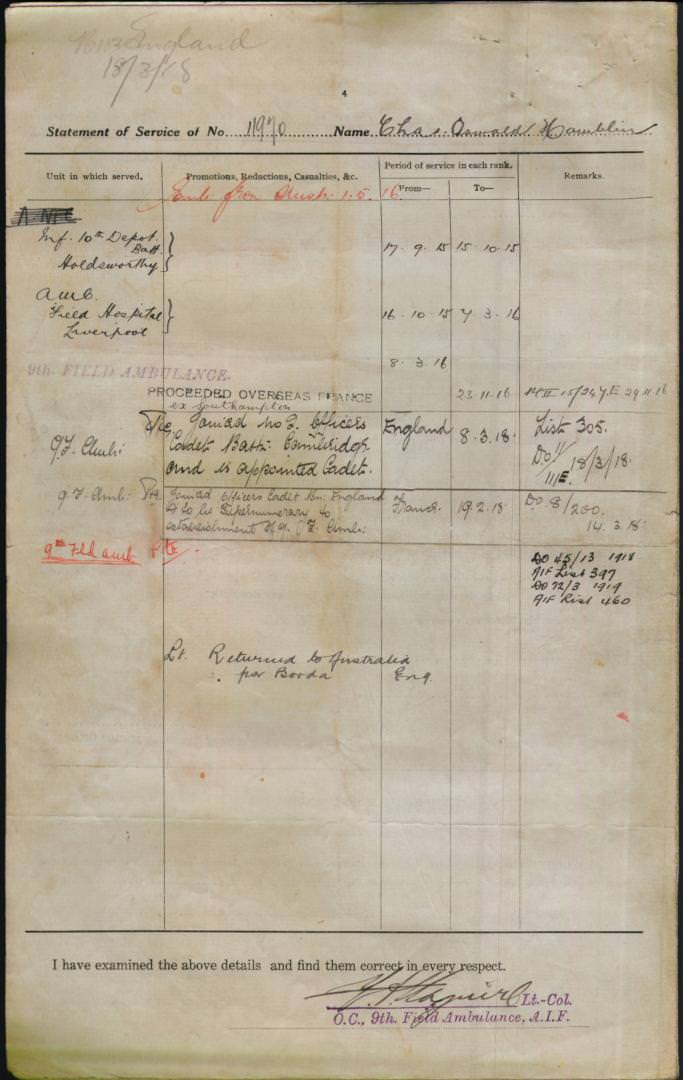 England
18/3/18
4
Statement of Service of No. 11970 Name Chas. Oswald Hamblin
Unit in which served. Promotions, Reductions, Casualties, &c. Period of service in each rank. Remarks.
From— To—
Emb. from Aust. 1.5.16.
Inf. 10th Depot. Batt. Holdsworthy } 17.9.15 15.10.15
A.M.C. Field Hospital Liverpool } 16.10.15 7.3.16
8.3.16
9th. FIELD AMBULANCE.
PROCEEDED OVERSEAS FRANCE 23.11.16 29.11.16
ex Southampton
9F. Amb: Pte Joined No 2. Officers England 8.3.18. List 305.
Cadet Battn. Cambridge DO 11/111E. 18/3/18.
and is appointed Cadet.
9.F. Amb: Pte. Joined Officers Cadet Bn: England France. 19.2.18 DO 8/200.
& to be Supernumerary to 14.3.18
establishment of 9. F. Amb:
9th Fld Amb Pte.
DO 45/13 1918
AIF List 397
DO 72/3 1919
AIF List 460
Lt. Returned to Australia
per Booda Eng.
I have examined the above details and find them correct in every respect.
Lt.-Col.
O.C., 9th. Field Ambulance, A.I.F.